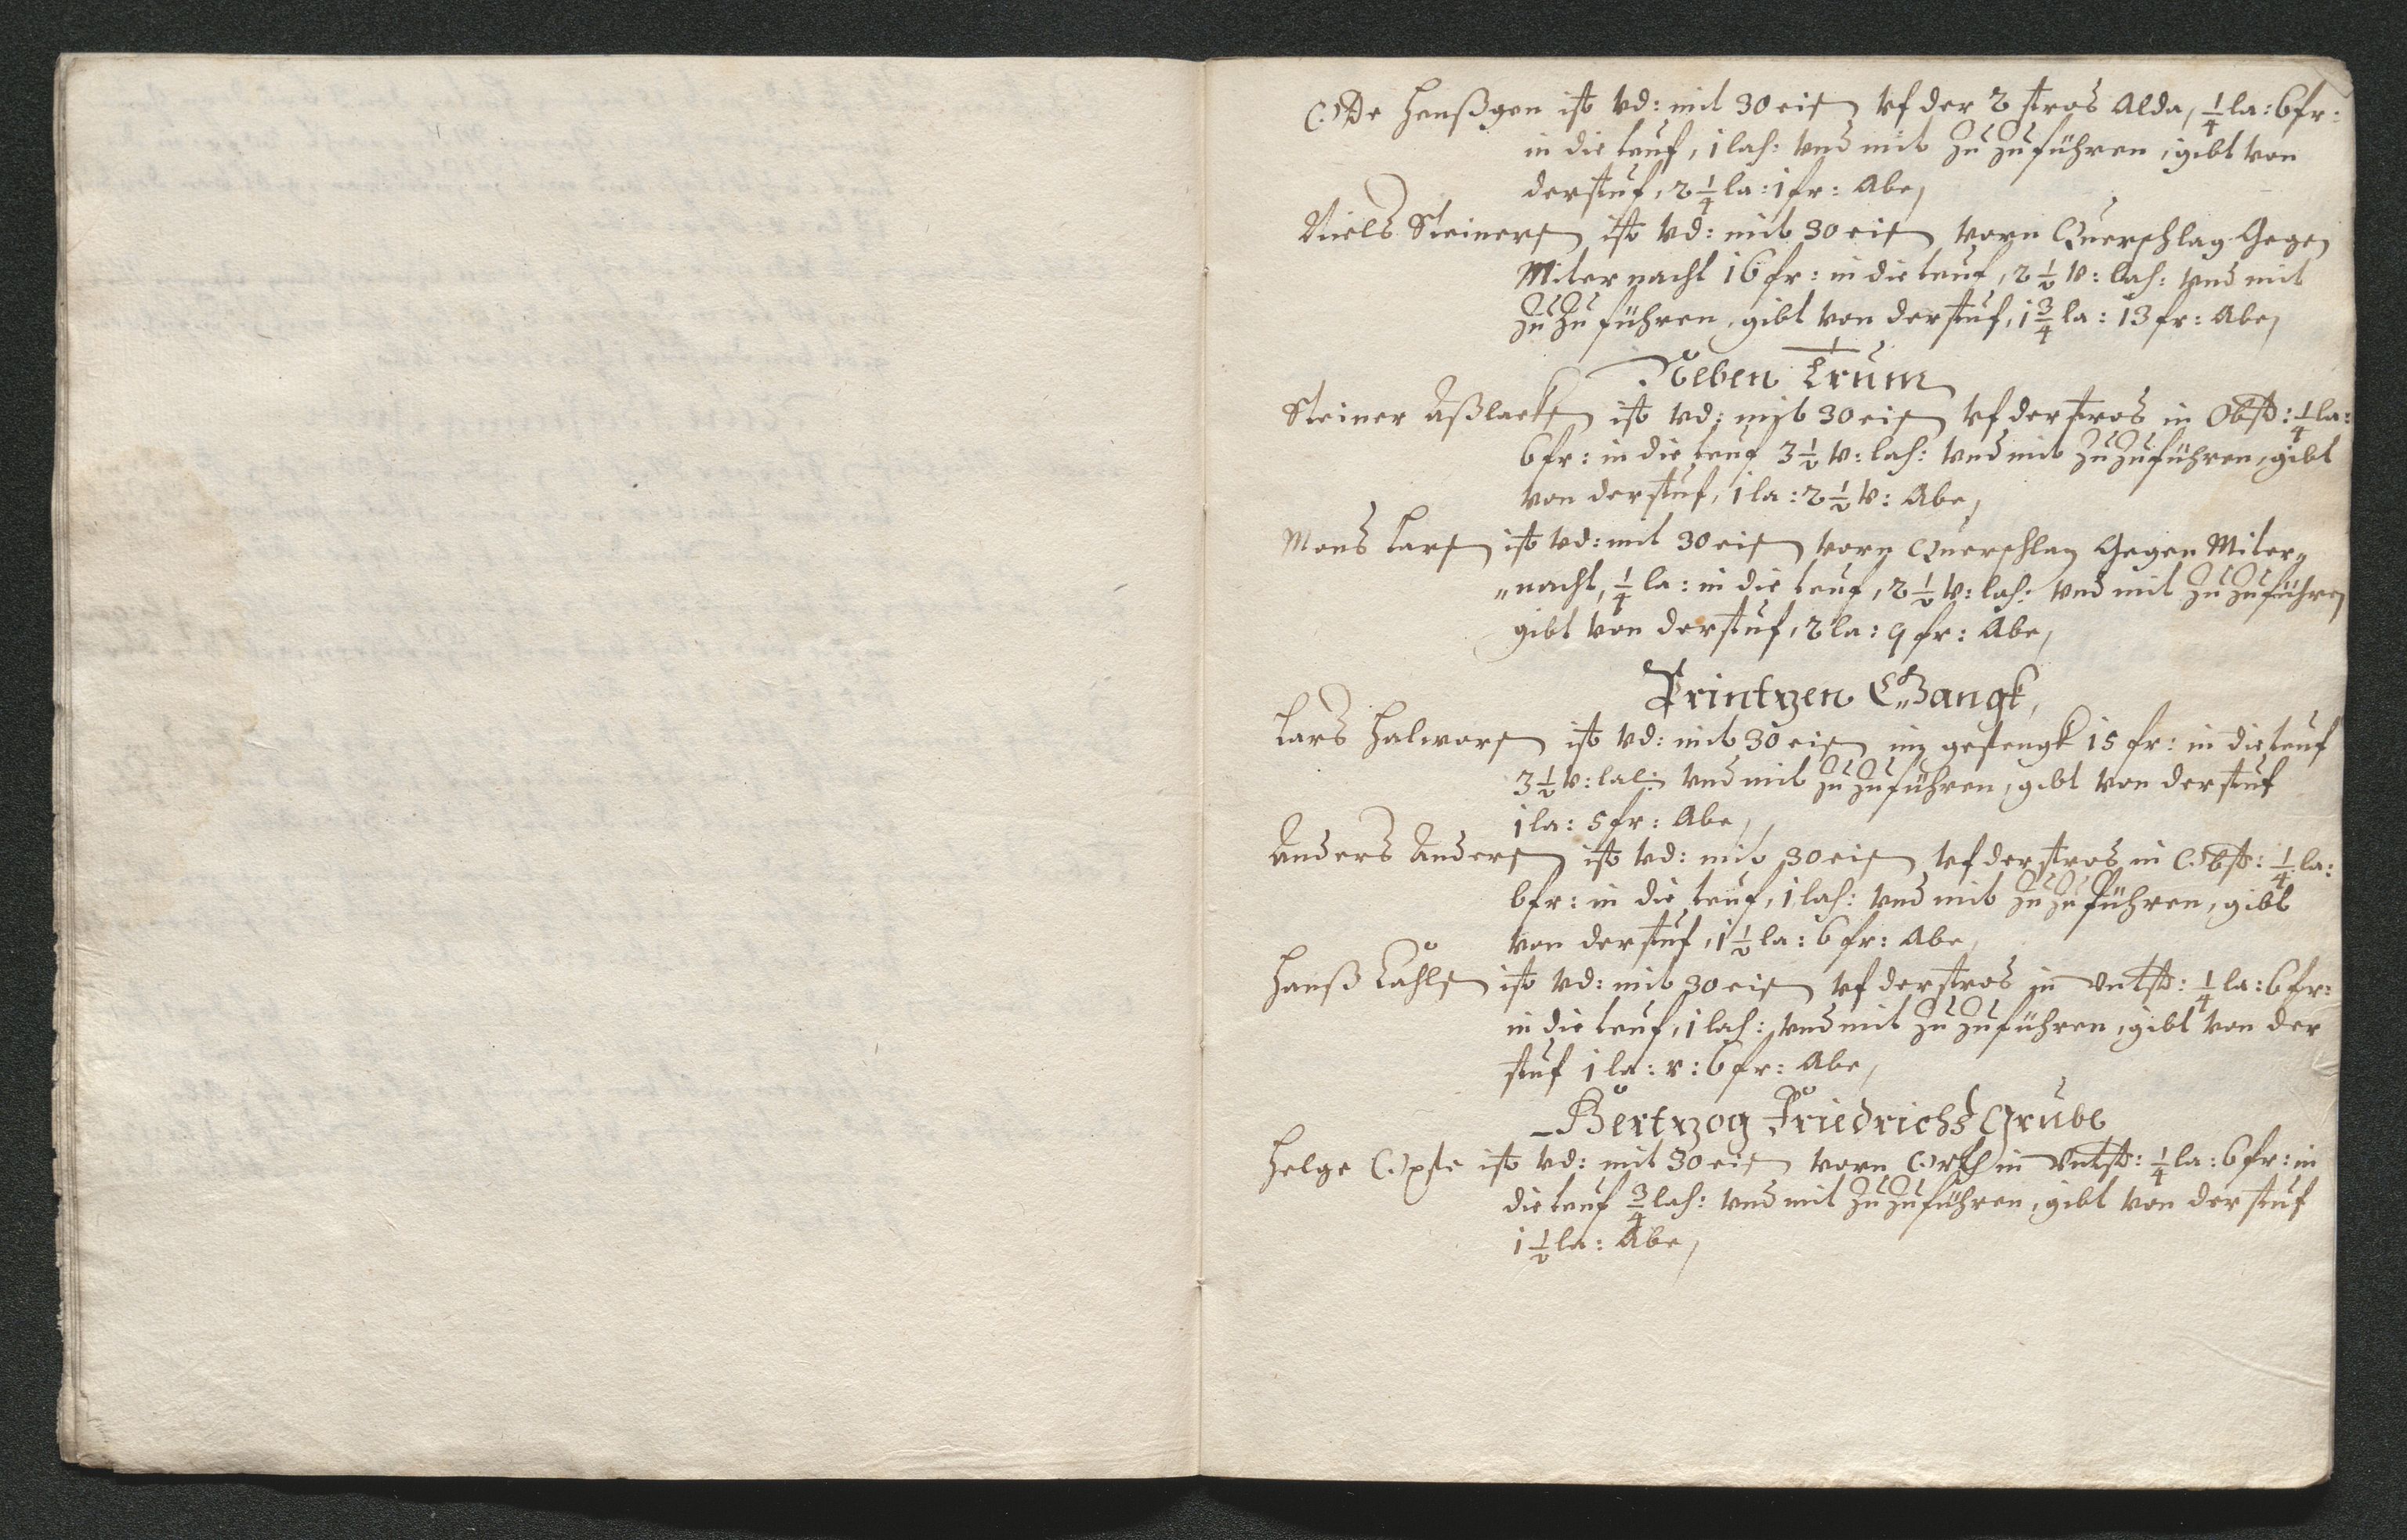 Ode Henßgen ist vd: mit 30 eisen vf der 2 stros Alda, 1/4 la: 6 fr:
in die teuf, 1 lah: vnd mit Zu Zu führen, gibt von
der stuf, 2 1/4 la: 1 fr: Abe,
Niels Steinersen ist vd: mit 30 eisen vorn Querschlag Gegen
Miternacht 16 fr: in die teuf, 2 1/2 v: lah: vnd mit
Zu Zu führen, gibt von der stuf, 1 3/4 la: 13 fr: Abe,
Neben Trum
Steiner Aßlacksen ist vd: mit 30 eisen vf der stros in Obst: 1/4 la:
6 fr: in die teuf 3 1/2 v: lah: vnd mit Zu Zu führen, gibt
von der stuf, 1 la: 2 1/2 v: Abe,
Mons Larsen ist vd: mit 30 eisen vorn Querschlag Gegen Miter„
„nacht, 1/4 la: in die teuf, 2 1/2 v: lah: vnd mit Zu Zu führen
gibt von der stuf, 2 la: 9 fr: Abe,
Printzen Gangk,
Lars Halworsen ist vd: mit 30 eisen im gesengk 15 fr: in die teuf
3 1/2 v: lah: vnd mit Zu Zu führen, gibt von der stuf
1 la: 5 fr: Abe,
Anders Andersen ist vd: mit 30 eisen vf der stros in Obst: 1/4 la:
6 fr: in die teuf, 1 lah: vnd mit Zu Zu führen, gibt
von der stuf, 1 1/2 la: 6 fr: Abe,
Hanß ist vd: mit 30 eisen vf der stros in Vntst: 1/4 la: 6 fr:
in die teuf, 1 lah: vnd mit Zu Zu führen, gibt von der
stuf 1 la: v: 6 fr: Abe,
Hertzog Friedrichs Grube
Helge ist vd: mit 30 eisen vorn Orth in Vntst: 1/4 la: 6 fr: in
die teuf 3/4 lah: vnd mit Zu Zu führen, gibt von der stuf
1 1/2 la: Abe,